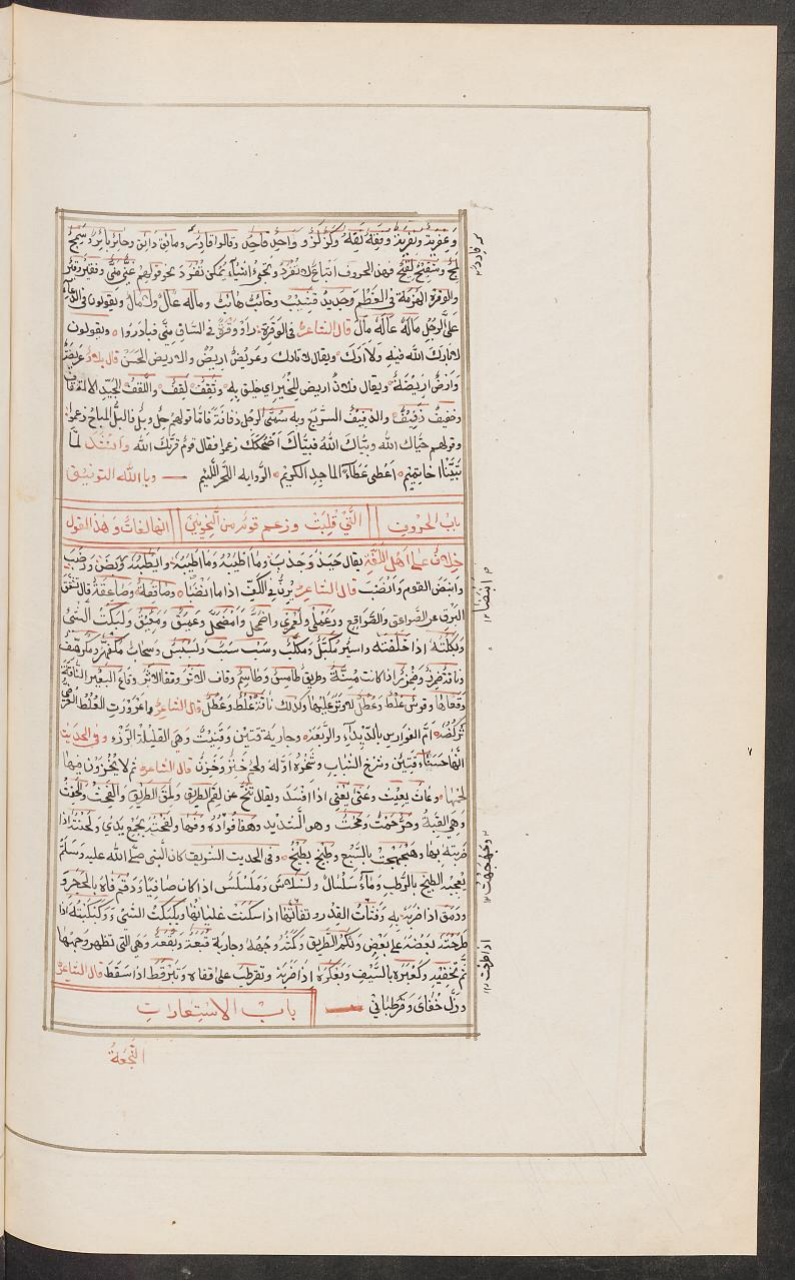 وعفريت ونفريت وثقة نقة وكز لز وواحد قاحد وقالوا قادر ومائق دائق وحائر بائر وسمج
لمج وشقيح لقيح فهذه الحروف اتباع لا تفرد وتجيء اشياء يمكن تفرد نحو قولهم غني ملي وفقير وقير
والوقرة الهزمة في العظم وجديد قشيب وخائب هائب وماله عال ولا مال ويقولون في الدعاء
على الرجل ماله عاله مال قال الشاعر في الوقرة راد وقرة في الساق مني فبادروا ويقولون
لا بارك الله فيه ولا دارك ويقال لا تادك وعريض اريض والاريض الحسن قال بلاد عريضة
وارض اريضة ويقال فلان اريض للخير اي خليق به وثقف لقف واللقف الجيد الالتقاف
وخفيف ذفيف والذفيف السريع وبه سمي الرجل ذفافة فاما قولهم حل وبل فالبل المباح زعموا
وقولهم حياك الله وبياك الله فبياك اضحكك زعموا فقال قوم قربك الله وانشد لما
تبيتنا اخا تميم اعطى عطاء الماجد الكريم الرواية اللحز اللئيم وبالله التوفيق
باب الحروف التي قلبت وزعم قوم من النحويين انها لغات وهذا القول
خلاف على اهل اللغة يقال جبذ وجذب وما اطيبه وما ايطبه وربض ورضب
وانبض القوس وانضب قال الشاعر يرن في الكف اذا ما انضبا وصاقعة وصاعقة قال تشقق
البرق عن الصواعق والصواقع ورعملي ولعمري واضمحل وامضحل وعميق ومعيق ولبكت الشئ
وبكلته اذا خلطته واسير مكبل ومكلب وسبسب وبسبس وسحاب مكفهر ومكرهف
وناقة ضمرز وضمزر اذا كانت مسنة وطريق طامس وطاسم وقاف الاثر وقفا الاثر وقاع البعير الناقة
وقعاها وقوس عطل وعلط لا وتر عليها وكذلك ناقة علط وعطل قال الشاعر واعرورت العلط العرضي
تركضه ام الفوارس بالديداء والربعه وجارية قتين وقنيت وهي القليلة الرزء وفي الحديث
انها حسناء قتين وشرخ الشباب وشخره اوله ولحم خنز وخزن قال الشاعر ثم لا يخزن فينا
لحمها وعاث يعيث وعثى يعثى اذا افسد ويقال تنح عن لقم الطريق ولمق الطريق والفحث والحفث
وهي القبة وحر حمت ومحت وهو الشديد وهفا فؤاده وفها ولفحته بجمع يدي ولحفته اذا
ضربته بها وهجهجت بالسبع وطبيخ بطيخ وفي الحديث الشريف كان النبي صلى الله عليه وسلم
يعجبه الطبيخ بالرطب وماء سلسال ولسلاس ومسلسل اذا كان صافيا ودقم فاه بالحجر
ودمق اذا ضربه به وفثأت القدر وثفأتها اذا سكنت غليانها وبكبكت الشئ وكبكبته اذا
طرحت بعضه على بعض وثكم الطريق وكثمه وجهه وجارية قبعة وبقعة وهي التي تظهر وجهها
ثم تخفيه وكعبره بالسيف وبعكره اذا ضربه وتقرطب على قفاه وتبرقط اذا سقط قال الشاعر
وزل خفاي وقرطباني باب الاستعارات
النجعة